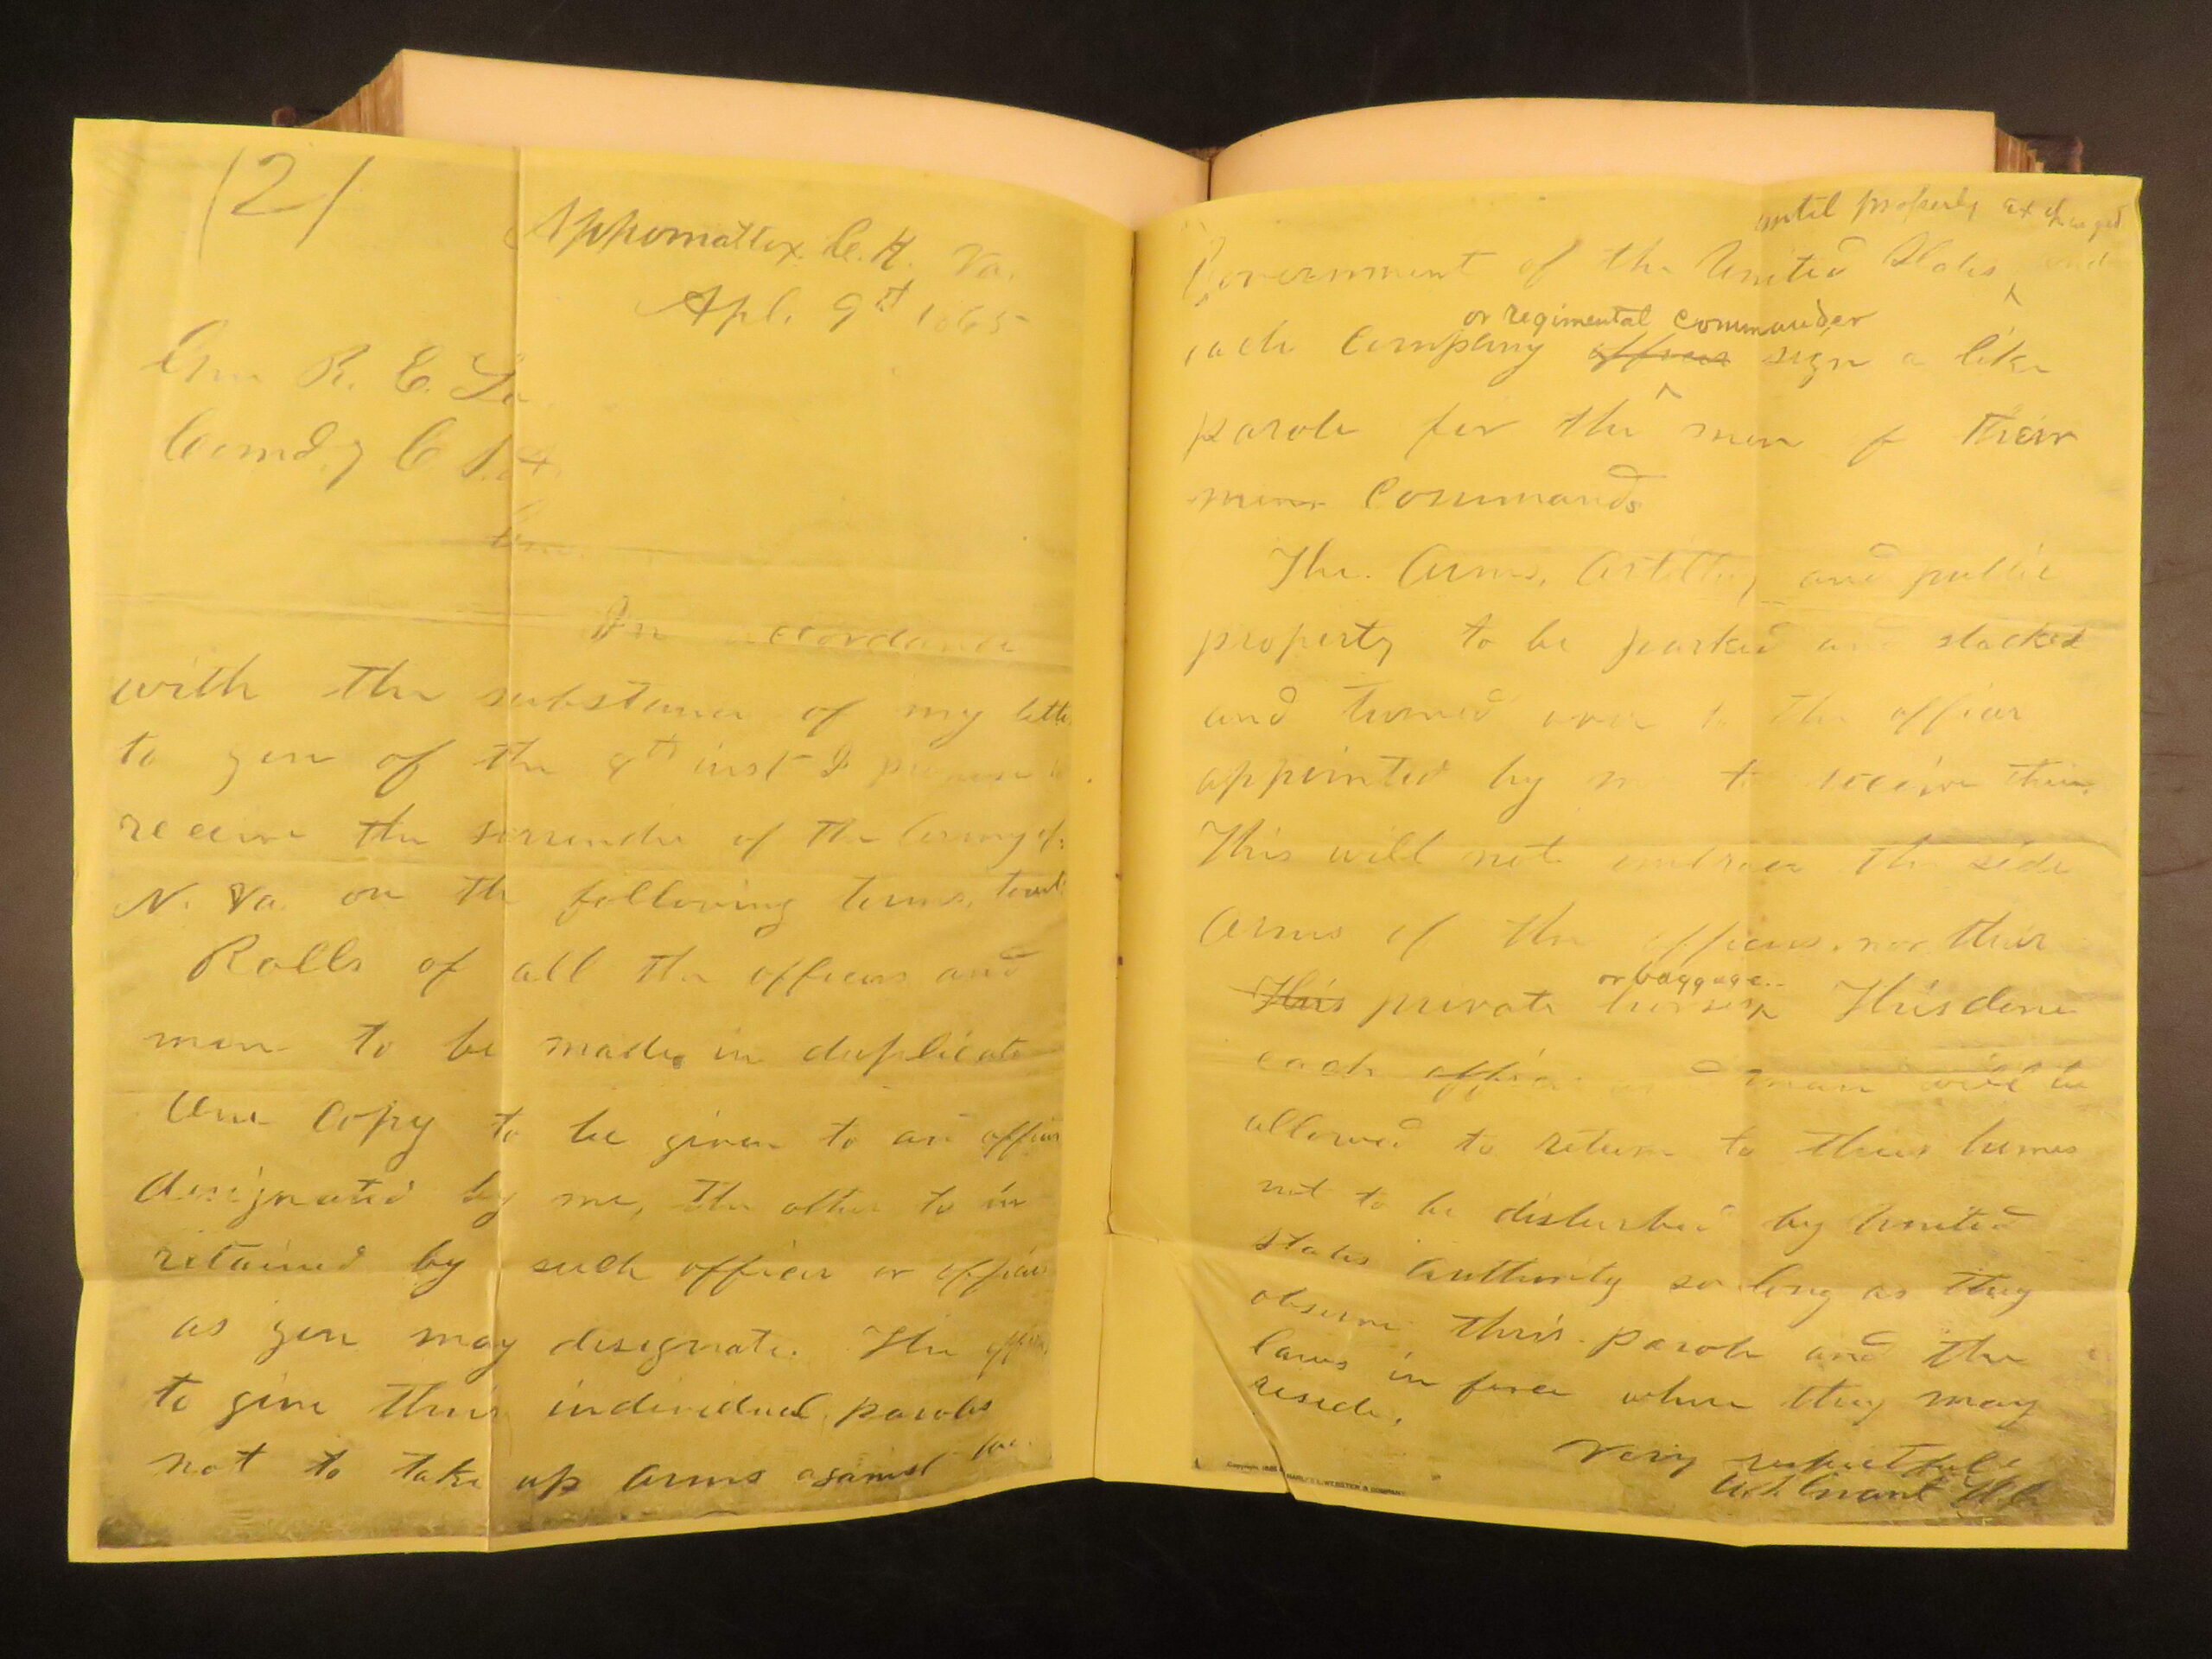 /2/
Appomattox C. H. Va.
Apl. 9th 1865
Gen R. E. Lee
Comd.g C. S. A.
Gen.
In accordance
with the substance of my letter
to you of the 8th inst I propose to
receive the surrender of the Army of
N. Va. on the following terms, towit
Rolls of all the officers and
men to be made in duplicate
One copy to be given to an officer
designated by me, the other to be
retained by such officer or officers
as you may designate. The officers
to give their individual paroles
not to take up arms against the
until properly exchanged
Government of the United States and
or regimental commander
each company officer sign a like
parole for the men of their
mens Commands
The Arms, Artillery and public
property to be parked and stacked
and turned over to the officer
appointed by me to receive them.
This will not embrace the side
Arms of the officers, nor their
or baggage.
This private horses This done
each officer and man will be
allowed to return to their homes
not to be disturbed by United
States Authority so long as they
observe their parole and the
laws in force where they may
reside.
Very respectfully
U. S. Grant Lt. Gn
Copyright 1885 CHARLES L. WEBSTER & COMPANY